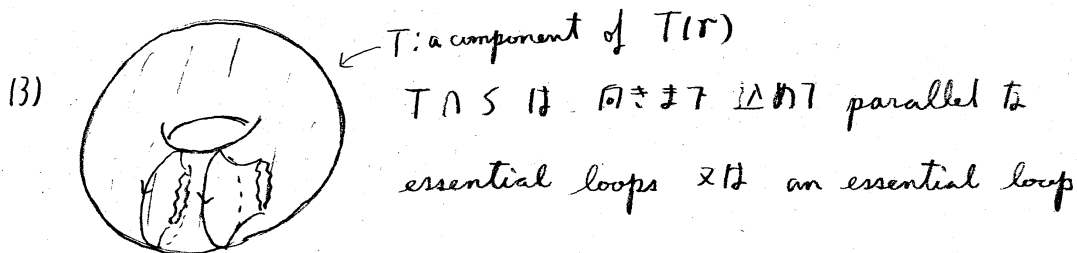 T: a component of T(γ)
(3)
T∩S は 向きまで 込めて parallel な
essential loops 又は an essential loop